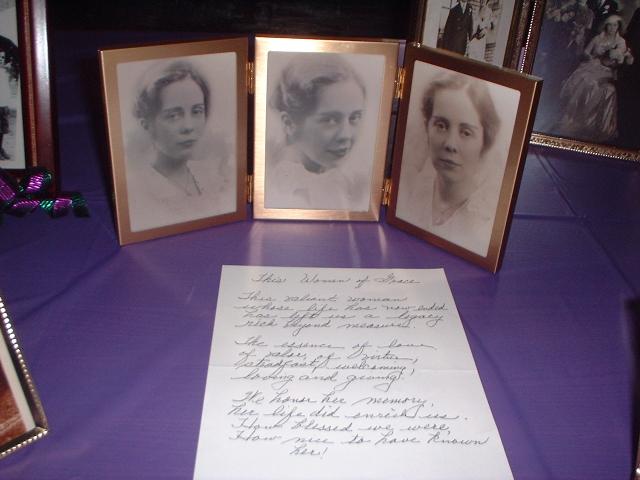 This Woman of Grace
This valiant woman
whose life has now ended
has left us a legacy
rich beyond measure.
The essence of love
of valor, of virtue,
steadfast, welcoming,
loving and giving.
We honor her memory,
her life did enrich us.
How blessed we were,
How nice to have known
her!